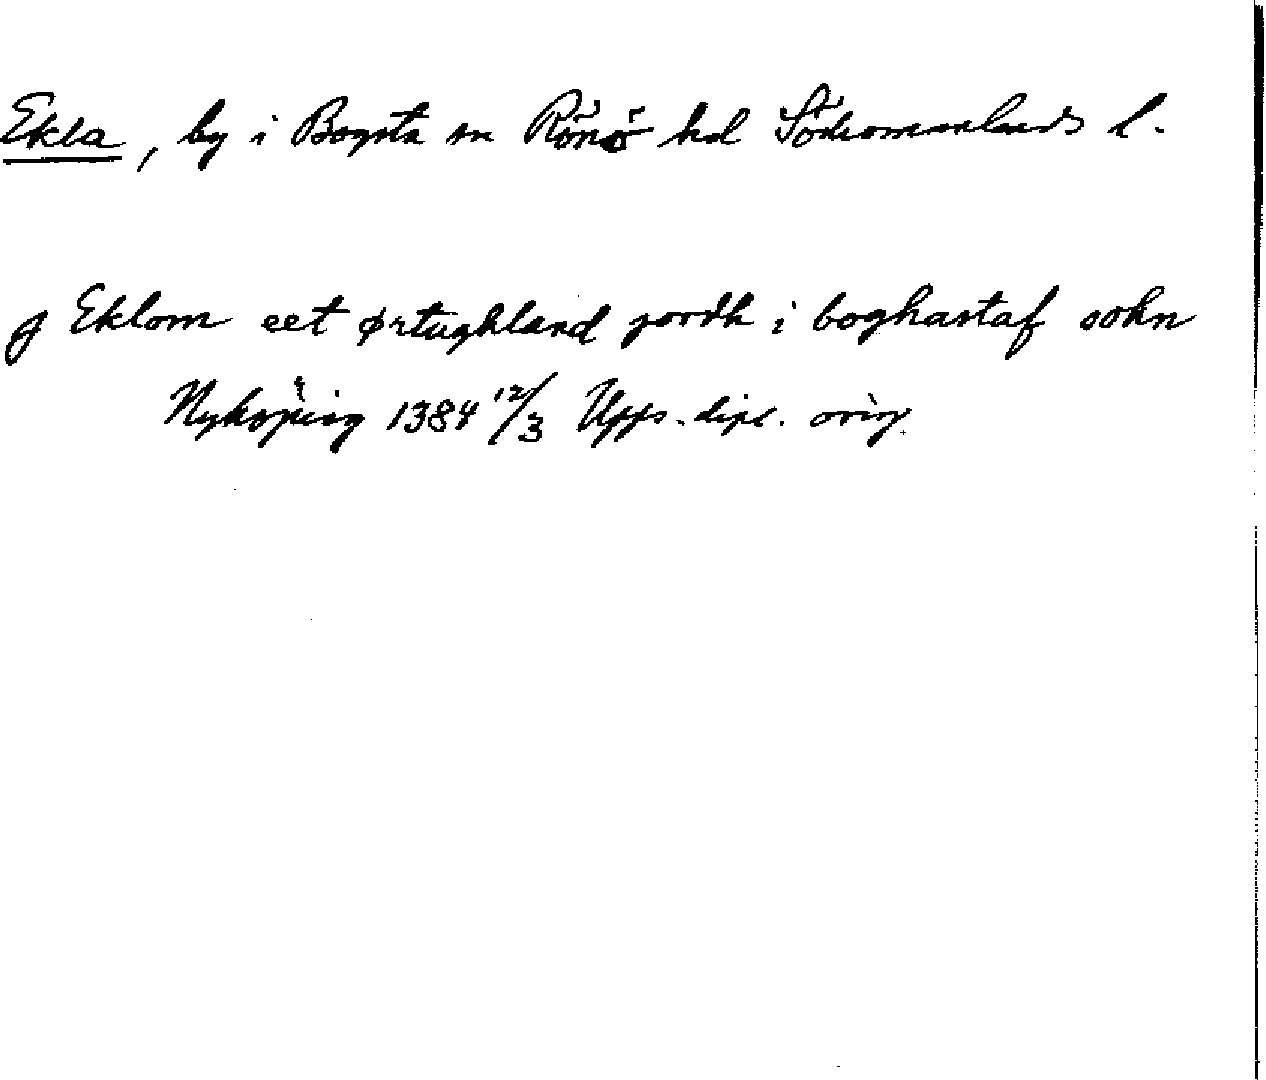 Ekla, by i Bogsta sn Rönö hd Södermanlands l.
j Eklom eet ørtughland jordh i boghastaf sokn
Nyköping 1384 12/3 Upps. dipl. orig.